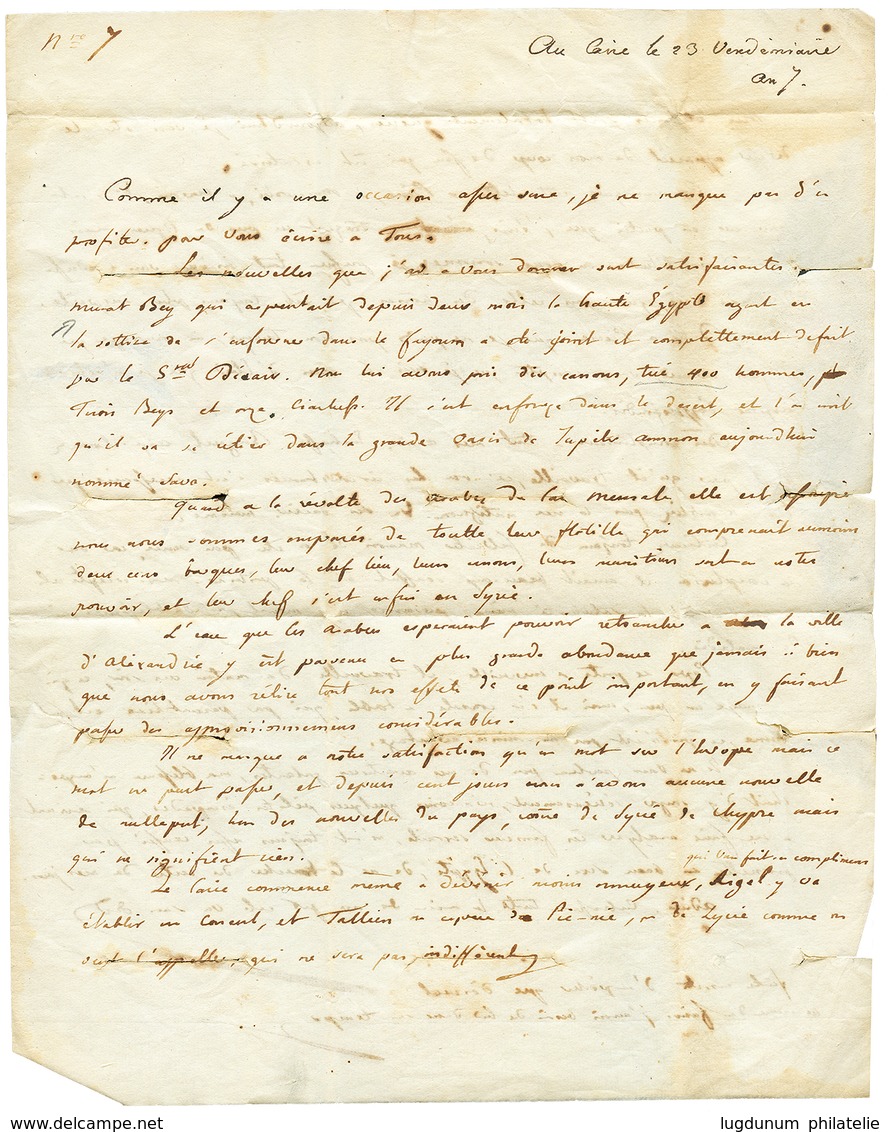 Nre 7
Au Caire le 23 Vendémiaire
an 7.
Comme il y a une occasion assez sure, je ne manque pas d'en
profiter. pour vous écrire a Tous.
Les nouvelles que j'ai a vous donner sont satisfaisantes.
murat Bey qui arpentait depuis deux mois la haute Égypte ayant eu
la sottise de s'enfourner dans le fayoum a eté joint et complettement defait
par le Gnal Désaix. Nous lui avons pris dix canons, tué 400 hommes,
Trois Beys et onze Ciachefs. Il s'est enfonçé dans le desert, et l'on croit
qu'il va se rétirer dans la grande oasis de Jupiter ammon aujourdhui
nommé Sava.
quand a la révolte des arabes du lac mensale elle est
nous nous sommes emparés de toutte leur flotille qui comprenait aumoins
deux cens barques, leur chef lieu, leurs canons, leurs munitions sont en notre
pouvoir, et leur chef s'est enfui en Syrie.
L'eau que les arabes esperaient pouvoir retrancher a la ville
d'Alexandrie y est parvenu en plus grande abondance que jamais si bien
que nous avons rétiré tout nos effets de ce point important, en y faisant
passer des approvisionnemens considérables.
Il ne manque a notre satisfaction qu'un mot sur l'Europe mais ce
mot ne part pas, et depuis cent jours nous n'avons aucune nouvelle
de nullepart, hors des nouvelles du pays, comme de Syrie de Chypre mais
qui ne signifient rien.
qui vous fait ses complimens
Le Caire commence même a devenir moins ennuyeux, Rigel y va
établir un Concert, et Tallien un espece de Pic-nic, ou de Lycée comme on
veut l'appeller, qui ne sera pas indifférent
www.delcampe.net
lugdunum philatelie